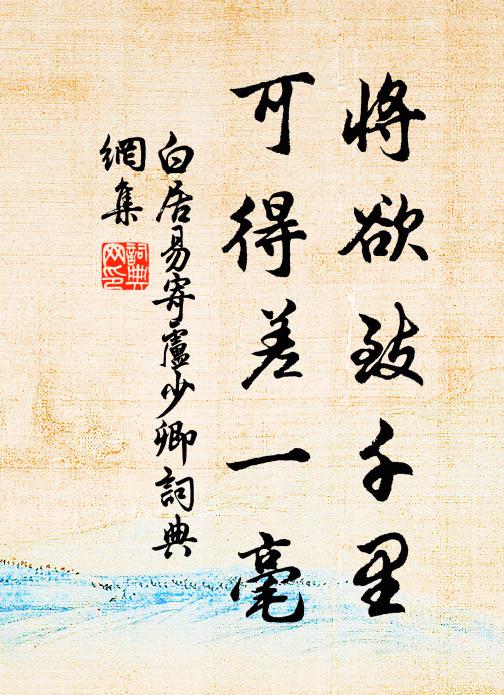 將欲致千里
可得差一毫
白居易寄盧少卿詞典
網集
詞典
网印